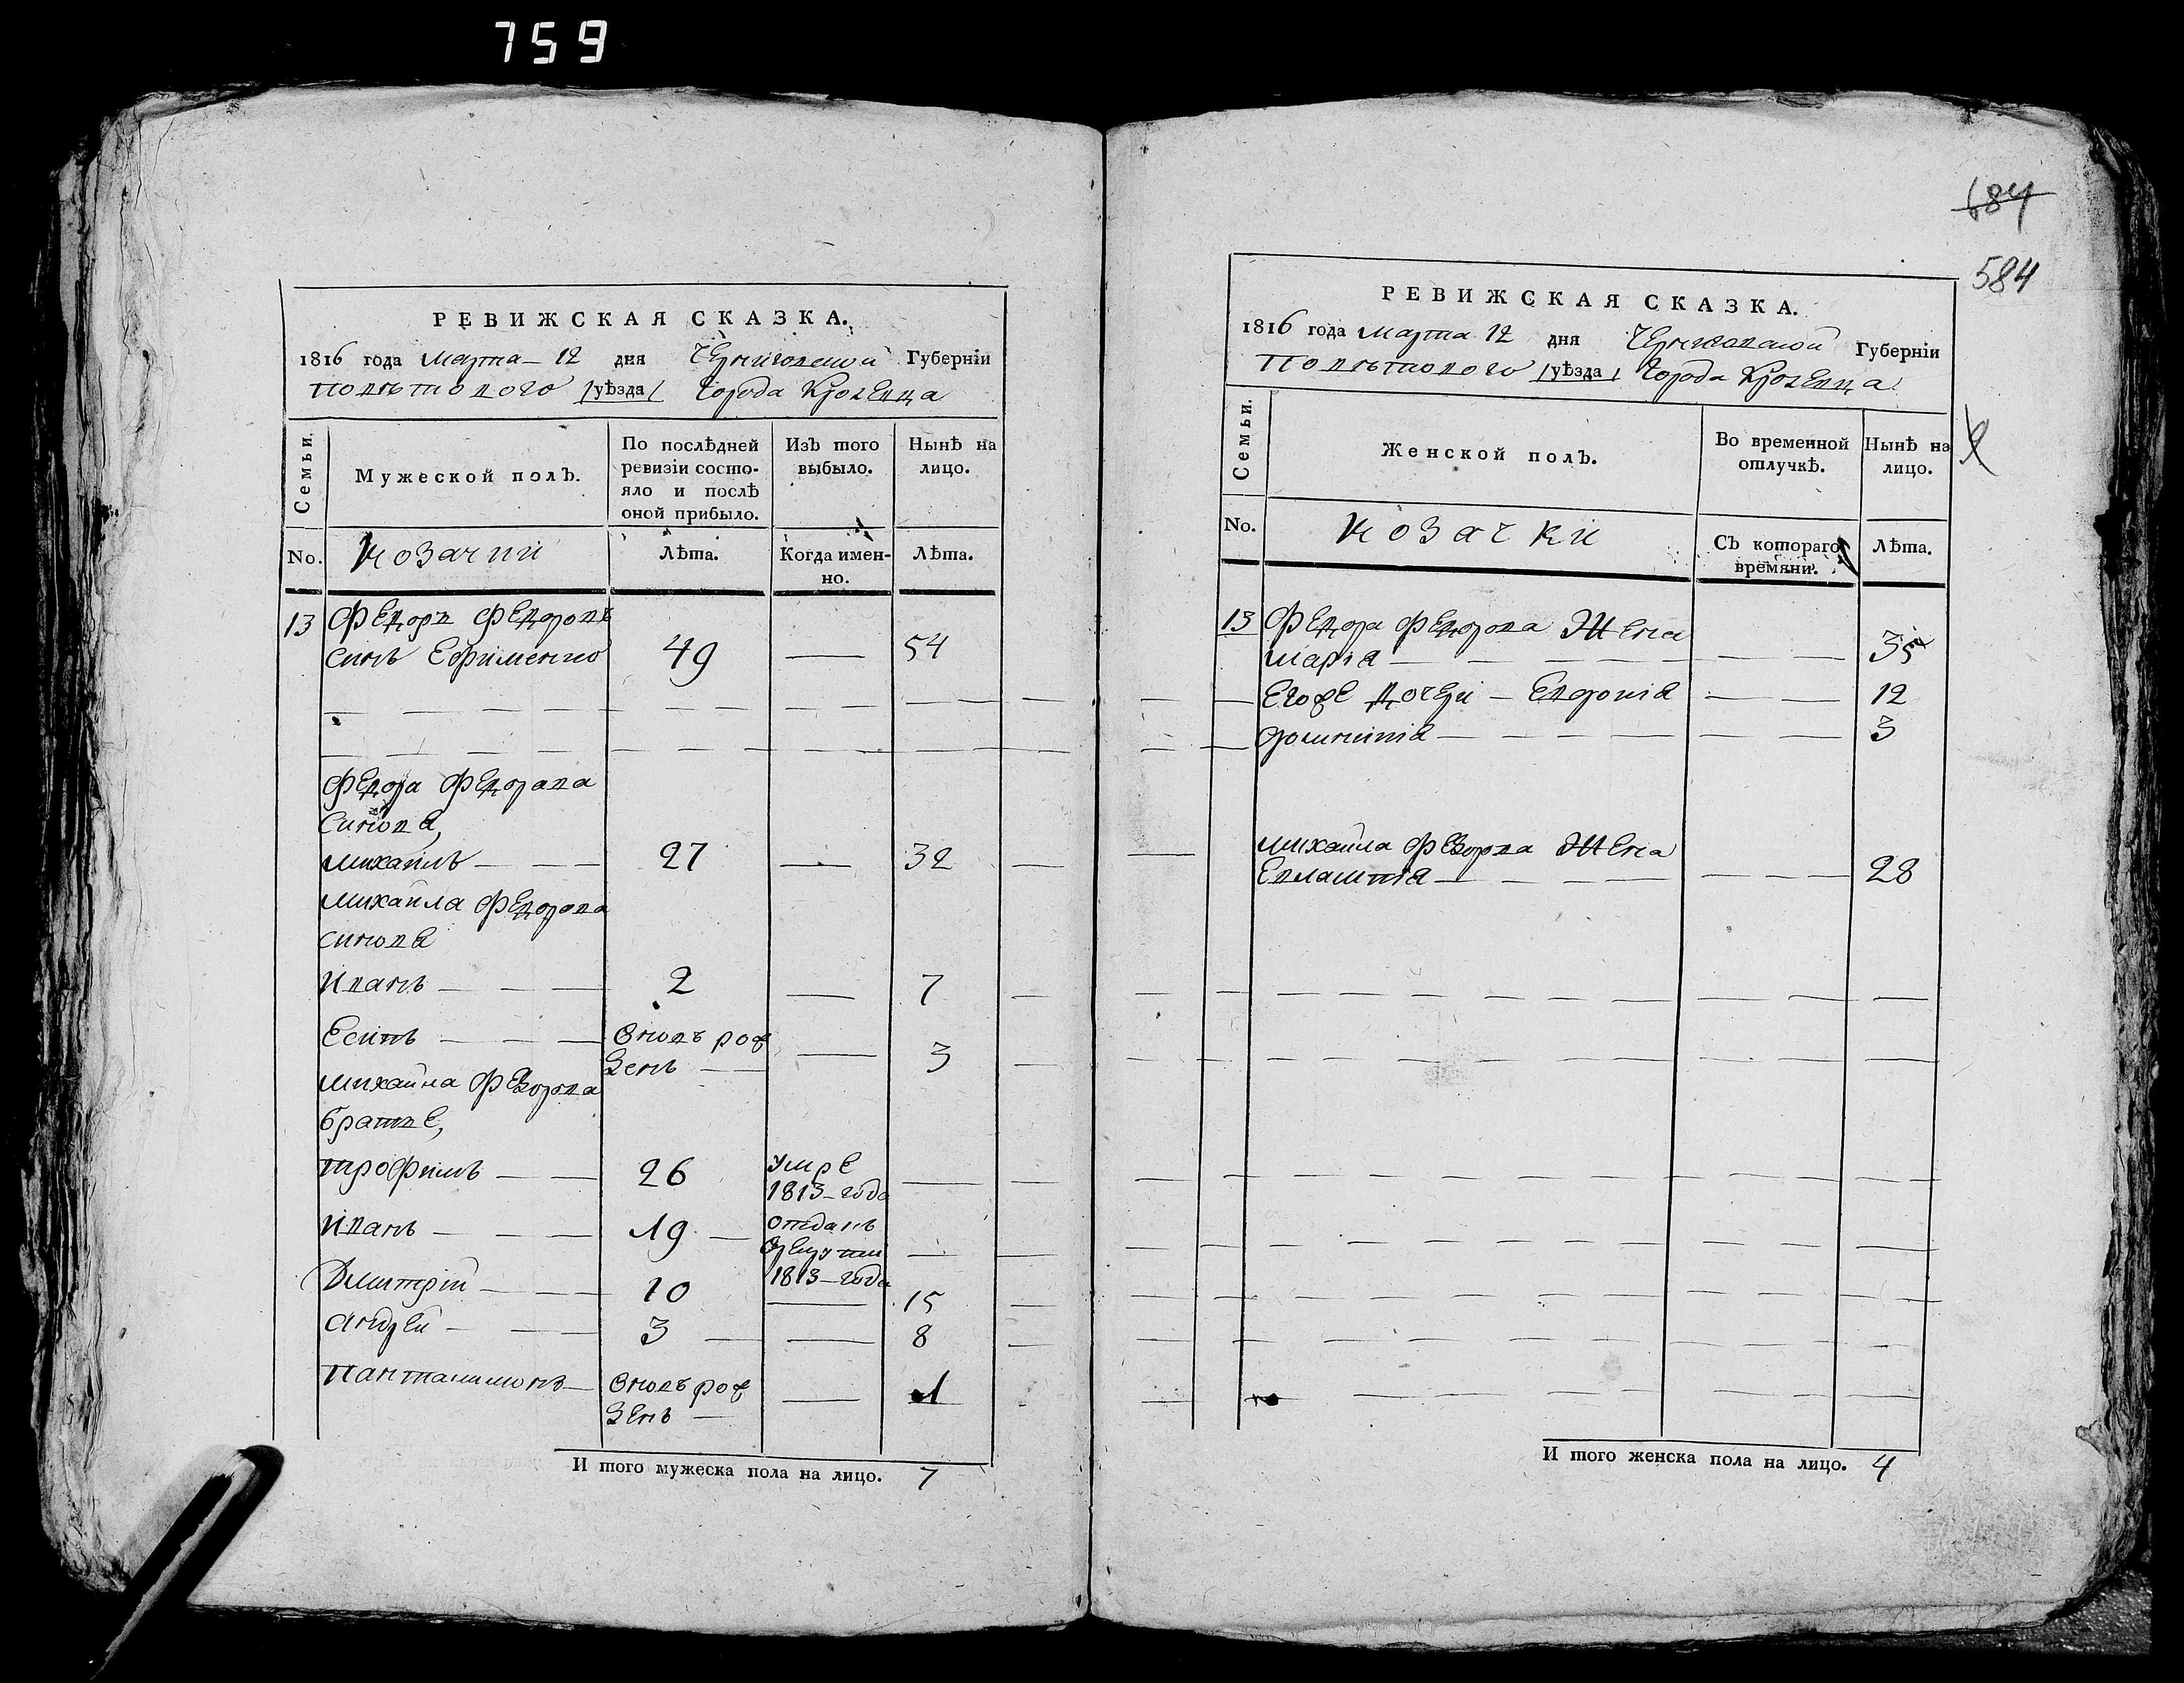 759
РЕВИЖСКАЯ СКАЗКА.
1816 года Марта 12 дня Черниговской Губернїи
Поветового /уѣзда/ Города Кролевца
Семьи.
Мужеской полъ.
По послѣдней ревизїи состо-
яло и послѣ оной прибыло.
Изъ того выбыло.
Нынѣ на лицо.
No.
козачий
Лѣта.
Когда имен-
но.
Лѣта.
13 Федоръ Федоровъ
синъ Ефименко 49 — 54
Федора Федорова
синовя,
михаилъ 27 — 32
михаила Федорова
синовя
иванъ 2 — 7
Есипъ вновь рож
денъ — 3
михаила Федорова
братя,
трофимъ 26 умре
1813 года —
иванъ 19 отданъ
1813 года —
Дмитрїй 10 — 15
андрей 3 — 8
пантелимонъ вновь рож
денъ — 1
И того мужеска пола на лицо. 7
684
584
РЕВИЖСКАЯ СКАЗКА.
1816 года Марта 12 дня Черниговской Губернїи
Поветового /уѣзда/ Города Кролевца
Семьи.
Женской полъ.
Во временной отлучкѣ.
Нынѣ на лицо.
No.
козачки
Съ котораго времяни.
Лѣта.
13 Федора Федорова Жена
марїя — 35
Егоже дочери — Евдокия — 12
— 3
михаила Федорова Жена
Евлампия — 28
И того женска пола на лицо. 4